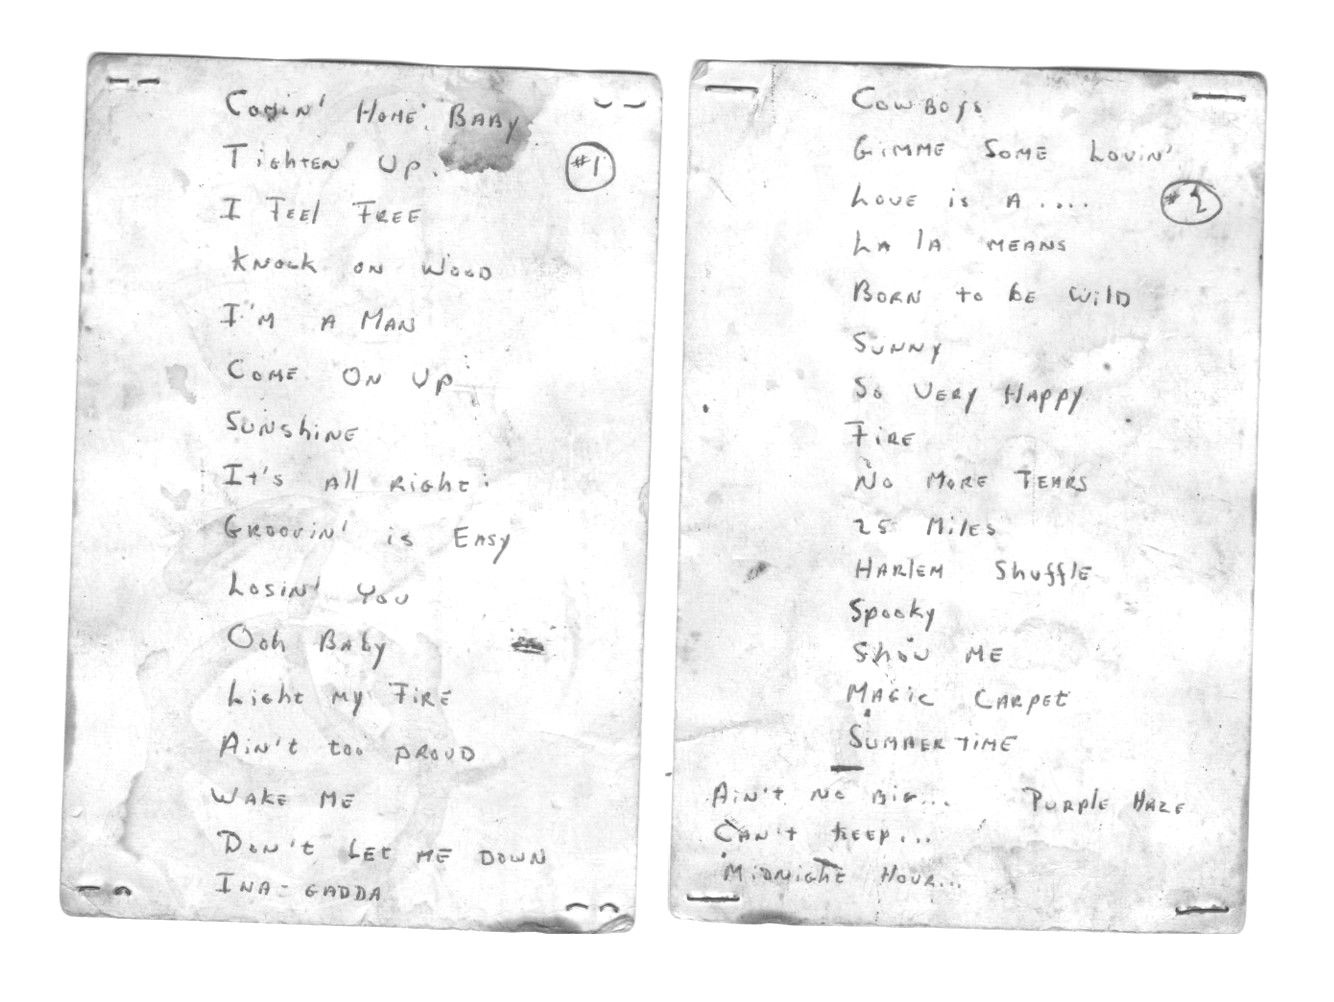 Comin' Home Baby
Tighten Up.
#1
I Feel Free
Knock on Wood
I'm a Man
Come on Up
Sunshine
It's all right
Groovin' is Easy
Losin' You
Ooh Baby
Light my Fire
Ain't too proud
Wake Me
Don't let me down
Ina-gadda
Cowboys
Gimme Some Lovin'
Love is a....
#2
La la means
Born to be wild
Sunny
So Very Happy
Fire
No More Tears
25 Miles
Harlem Shuffle
Spooky
Show me
Magic Carpet
Summertime
Ain't no big... Purple Haze
Can't keep...
Midnight Hour...